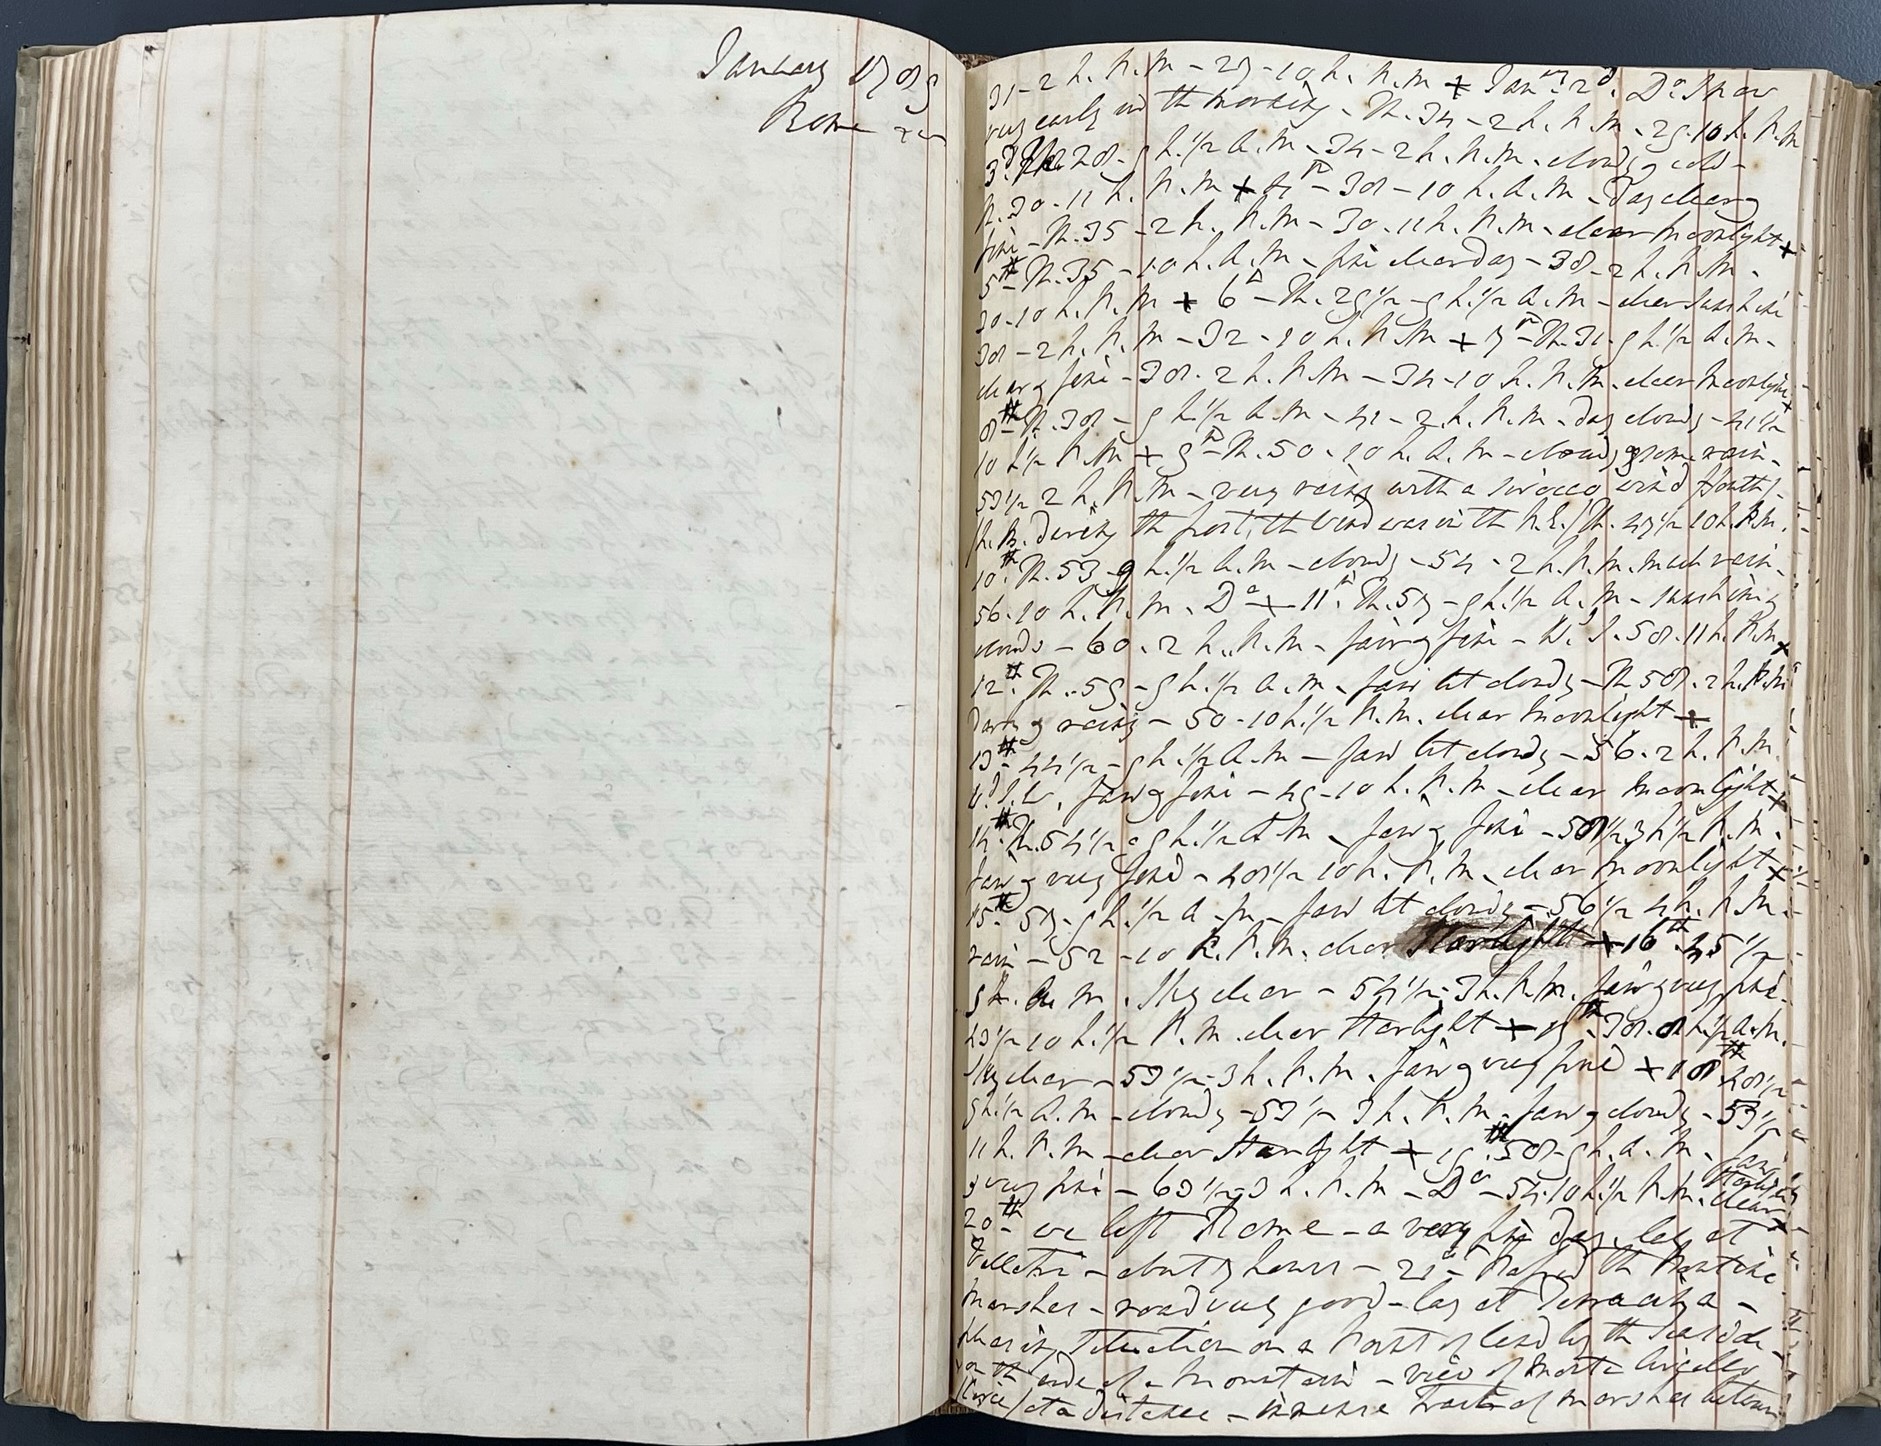 January 1789
Rome
31 - 2 h. P.M - 29 - 10 h. P.M + Jan.ry 2d. Do. Snow
very early in the morning - Th. 34 - 2 h. P.M - 29. 10 h. P.M
3d. 28 - 9 h. 1/2 A.M - 34 - 2 h. P.M. cloudy & cold -
Th. 30 - 11 h. P.M + 4th - 38 - 10 h. A.M - Day clear &
fine - Th. 35 - 2 h. P.M - 30. 11 h. P.M. clear moonlight +
5th - Th. 35 - 10 h. A.M - fine clear day - 38 - 2 h. P.M -
30 - 10 h. P.M + 6th - Th. 29 1/2 - 9 h. 1/2 A.M - clear sunshine
38 - 2 h. P.M - 32 - 10 h. P.M + 7th - Th. 31 - 9 h. 1/2 A.M -
clear & fine - 38. 2 h. P.M - 34 - 10 h. P.M. clear moonlight +
8th - Th. 38 - 9 h. 1/2 A.M - 41 - 2 h. P.M. day cloudy - 41 1/2
10 h 1/2 P.M + 9th - Th. 50 - 10 h. A.M - cloudy & some rain -
53 1/2 2 h. P.M - very rainy with a sirocco wind South /
/N.B. During the frost, the wind was in the N.E./ Th. 47 1/2 10 h. P.M.
10th. Th. 53 - 9 h. 1/2 A.M - cloudy - 54 - 2 h. P.M. much rain -
56. 10 h. P.M. Do + 11th. Th. 57 - 9 h. 1/2 A.M - sunshine &
clouds - 60. 2 h. P.M - fair & fine - W. S. 58. 11 h. P.M +
12th. Th. 59 - 9 h. 1/2 A.M. fair but cloudy - Th 58. 2 h. P.M
Dark & rainy - 50 - 10 h. 1/2 P.M. clear moonlight +
13th - 44 1/2 - 9 h. 1/2 A.M - fair but cloudy - 56. 2 h. P.M
W.d S.W. fair & fine - 49 - 10 h. P.M - clear moonlight +
14th. Th. 54 1/2 - 9 h. 1/2 A.M - fair & fine - 58 1/2 3 h 1/2 P.M.
fair & very fine - 48 1/2 10 h. P.M. clear moonlight +
15th - 57 - 9 h. 1/2 A.M - fair but cloudy - 56 1/2 4 h. P.M -
rain - 52 - 10 h. P.M. clear Starlight + 16th. 45 1/2
9 h. A.M. Sky clear - 54 1/2 - 3 h. P.M. fair & very fine -
43 1/2 10 h. 1/2 P.M. clear Starlight + 17th. 38. 8 h. 1/2 A.M.
Sky clear - 53 1/2 - 3 h. P.M. fair & very fine + 18th. 48 1/2
9 h. 1/2 A.M - cloudy - 53 1/2 3 h. P.M - fair & cloudy - 53 1/2
11 h. P.M - clear Starlight + 19th. 50 - 9 h. A.M. fair
& very fine - 63 1/2 - 3 h. P.M - Do - 54. 10 h. 1/2 P.M. clear Starlight +
20th - we left Rome - a very fine day. lay at
Velletri - about 7 hours - 21st - Passed the Pontine
Marshes - road very good - lay at Terracina -
pleasing situation on a Point of land by the seaside -
on the side of a mountain - view of Monte Circello
/Circe/ at a distance - immense Tract of marshes between